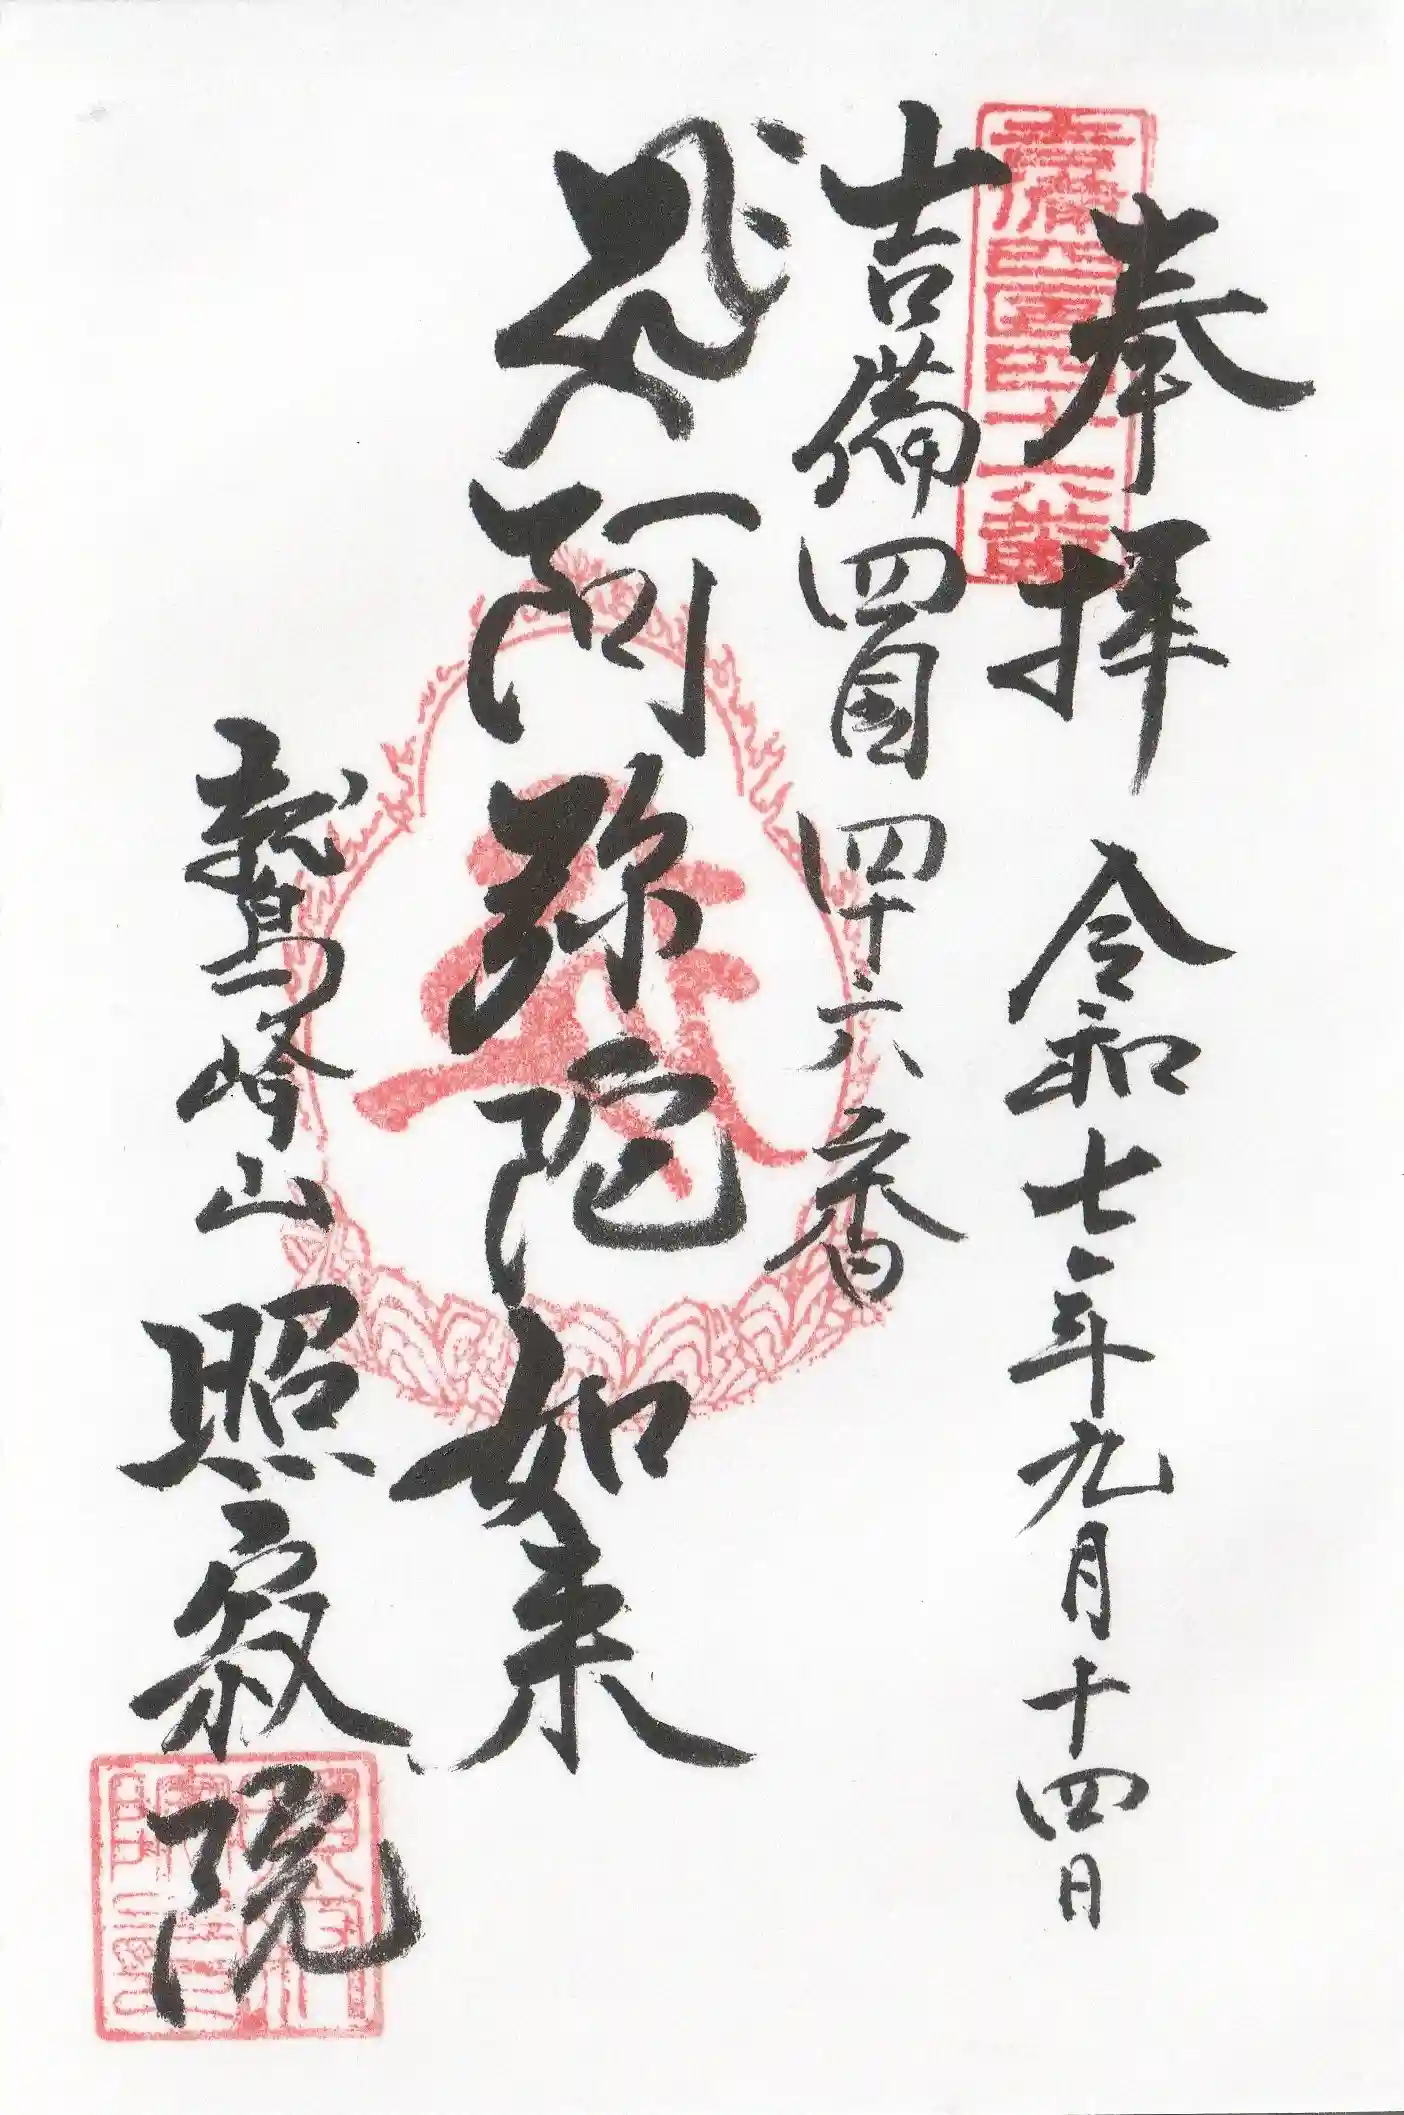 奉拝 令和七年九月十四日
吉備四国四十六番
阿弥陀如来
鷲峰山 照寂院